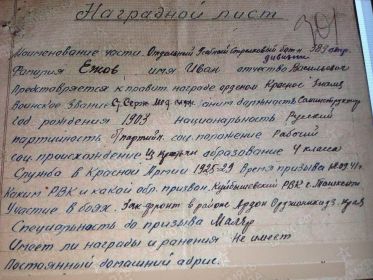 Наградной лист
301
Наименование части Отдельный Учебный Стрелковый бат-н 389 стр дивизии
Фамилия Ежов имя Иван отчество Васильевич
Представляется к правит награде орденом Красное Знамя
Воинское звание С/Серж мед служ должность Санинструктор
Год рождения 1903 национальность Русский
партийность б/партийн. соц положение Рабочий
соц происхождение Из крестьян образование 4 класса
Служба в Красной Армии 1925-29 Время призыва 09.41г
Каким РВК и какой обл призван Куйбышевский РВК г. Ташкента
Участие в боях. Зак-фронт в районе Ардон Орджоникидз.
Специальность до призыва Маляр
Имеет ли награды и ранения Не имеет
Постоянный домашний адрес.